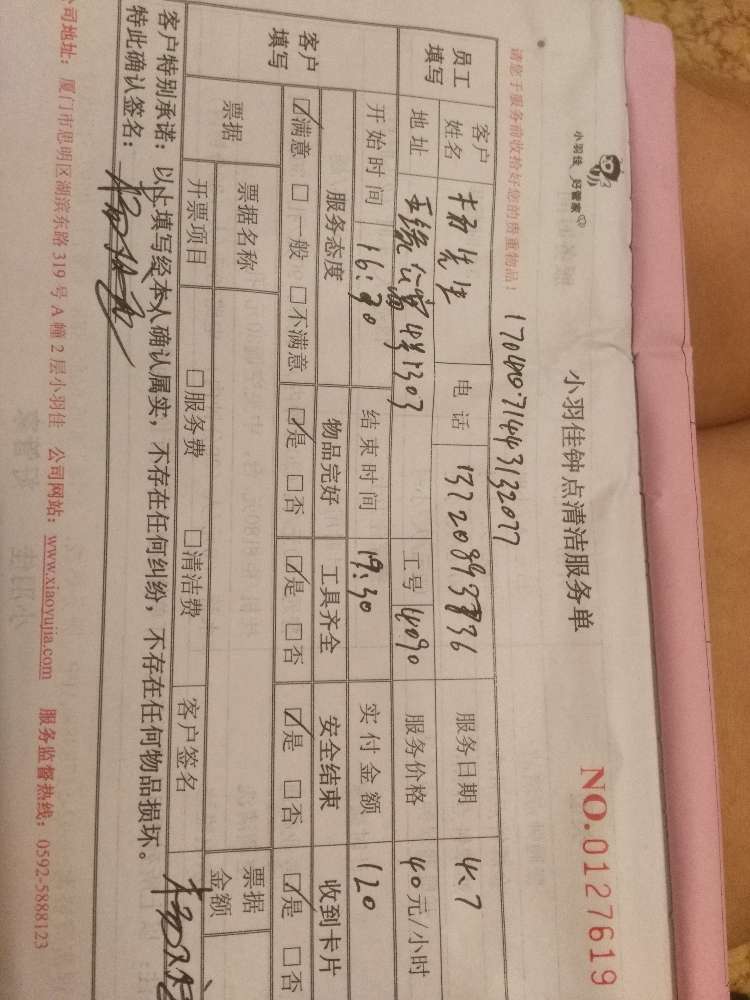 小羽佳 好管家
小羽佳钟点清洁服务单
NO.0127619
请您于服务前收拾好您的贵重物品!
员工填写
客户姓名 杨先生 电话 服务日期 4.7
地址 公寓 1303 工号 4090 服务价格 40元/小时
开始时间 16:30 结束时间 19:30 实付金额 120
客户填写
服务态度 物品完好 工具齐全 安全结束 收到卡片
☑满意 □一般 □不满意 ☑是 □否 ☑是 □否 ☑是 □否 ☑是 □否
票据 票据名称 票据金额
开票项目 □服务费 □清洁费 客户签名
客户特别承诺:以上填写经本人确认属实,不存在任何纠纷,不存在任何物品损坏。
特此确认签名:
司地址:厦门市思明区湖滨东路319号A幢2层小羽佳 公司网站:www.xiaoyujia.com 服务监督热线:0592-5888123